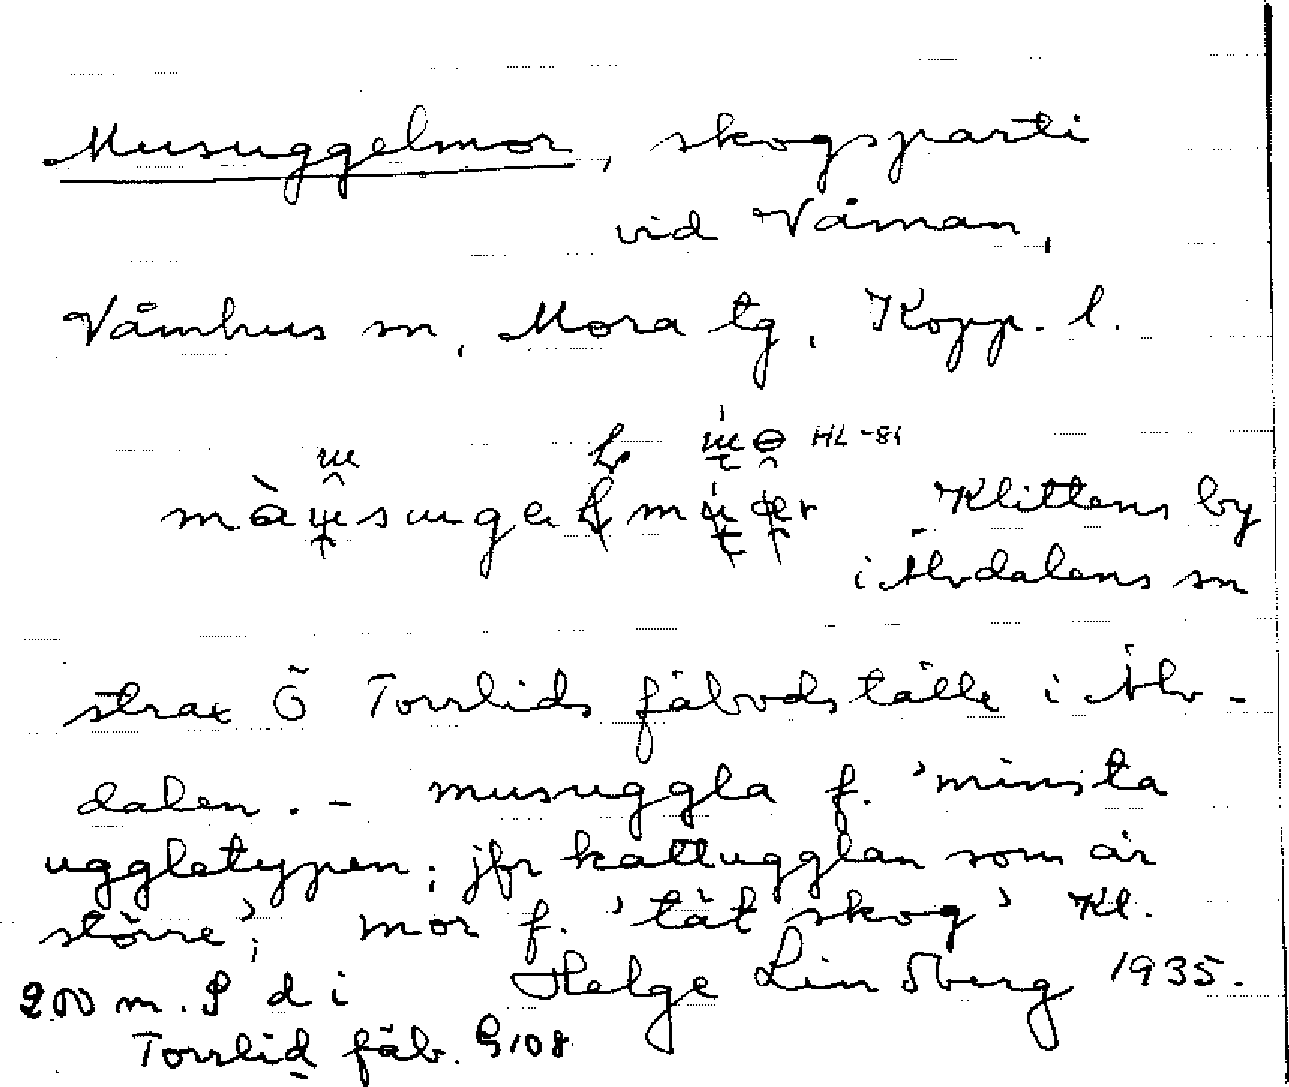 Musuggelmor, skogsparti
vid Våman,
Våmhus sn, Mora tg, Kopp. l.
HL -81
Klittens by
i Älvdalens sn
strax Ö Torrlids fäbodställe i Älv-
dalen. - musuggla f. 'minsta
uggletypen; jfr kattugglan som är
större'; mor f. 'tät skog' Kl.
200 m. S d i Helge Lindberg 1935.
Torrlid fäb. G108